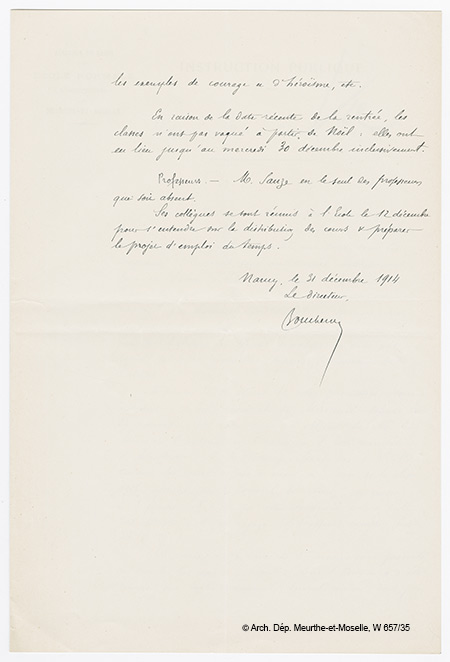 les exemples de courage et d'héroïsme, etc.
En raison de la date récente de la rentrée, les
classes n'ont pas vaqué à partir de Noël : elles ont
eu lieu jusqu'au mercredi 30 décembre inclusivement.
Professeurs. — M. Sauze est le seul des professeurs
qui soit absent.
Ses collègues se sont réunis à l'Ecole le 12 décembre
pour s'entendre sur la distribution des cours et préparer
le projet d'emploi du temps.
Nancy, le 31 décembre 1914
Le Directeur,
© Arch. Dép. Meurthe-et-Moselle, W 657/35